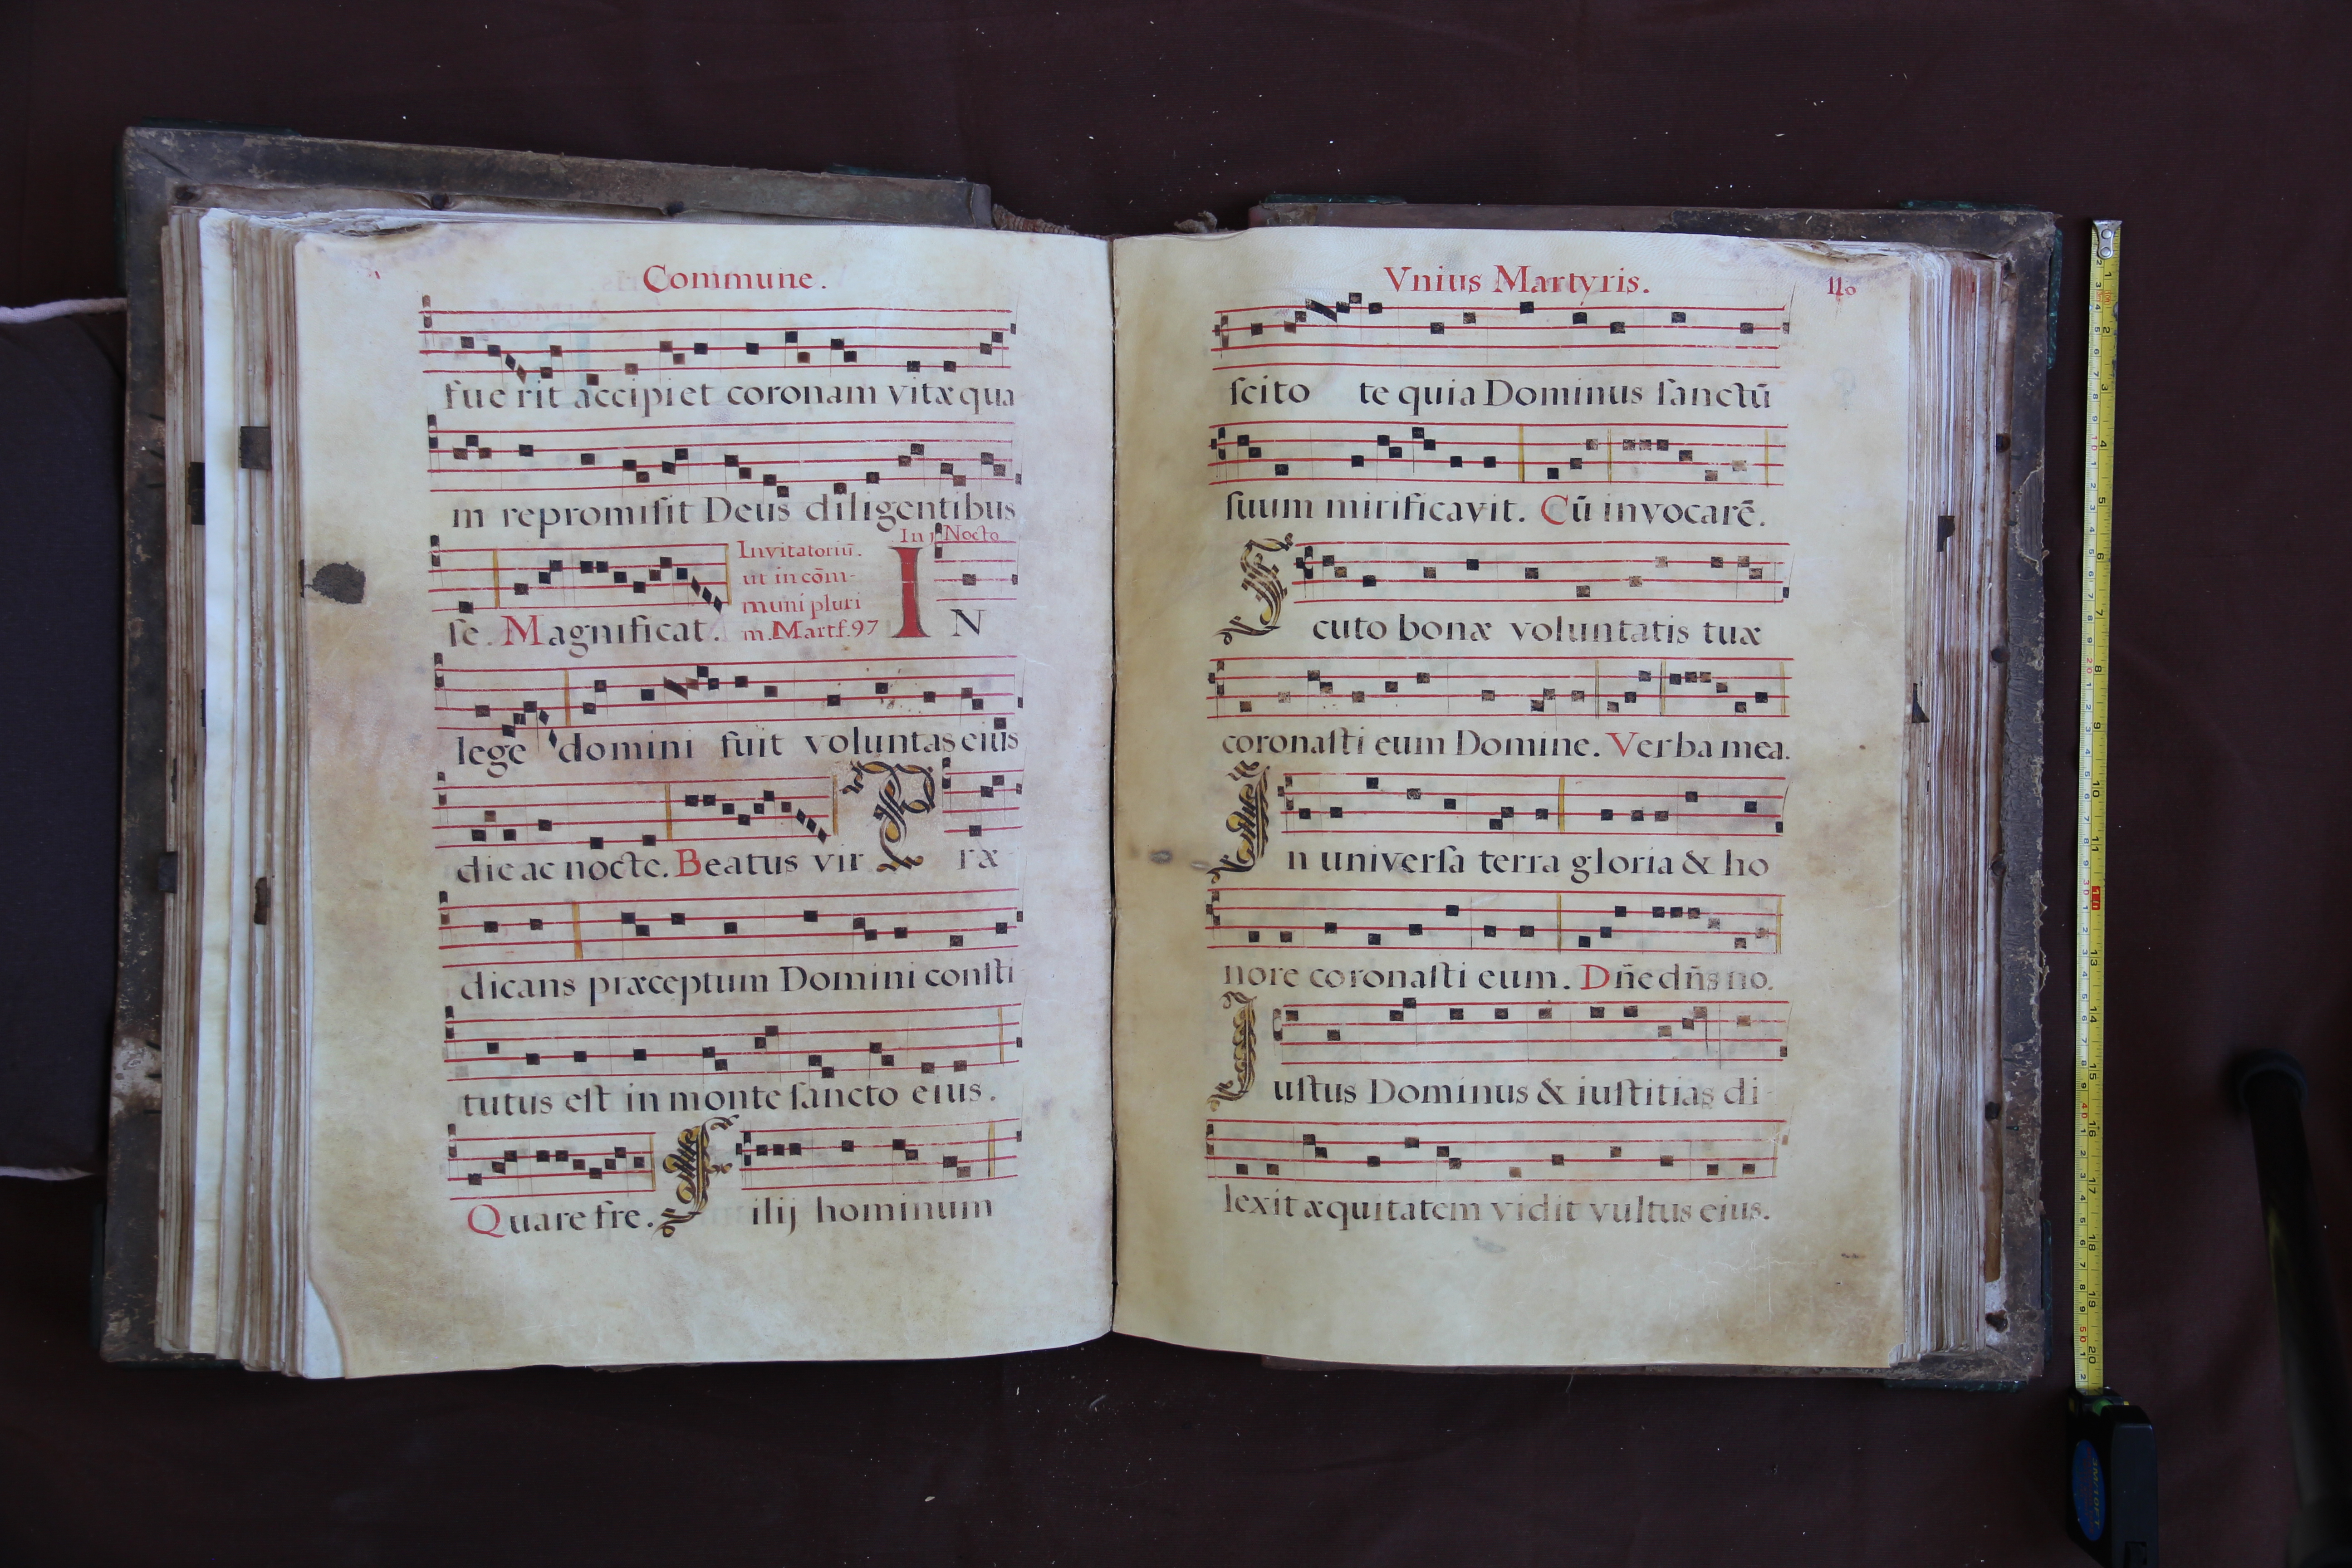 Commune.
fue rit accipiet coronam vitæ qua
m repromiſit Deus diligentibus
In j Nocto
Invitatoriū.
ut in cōm-
muni pluri
m. Mart f. 97
ſe. Magnificat. IN
lege domini fuit voluntas eius
die ac nocte. Beatus vir Præ
dicans præceptum Domini conſti
tutus eſt in monte ſancto eius.
Quare fre. Filij hominum
Vnius Martyris. 110
ſcito te quia Dominus ſanctū
ſuum mirificavit. Cū invocarē.
Scuto bonæ voluntatis tuæ
coronaſti eum Domine. Verba mea.
In univerſa terra gloria & ho
nore coronaſti eum. Dñe dñs no.
Iuſtus Dominus & iuſtitias di-
lexit æquitatem vidit vultus eius.